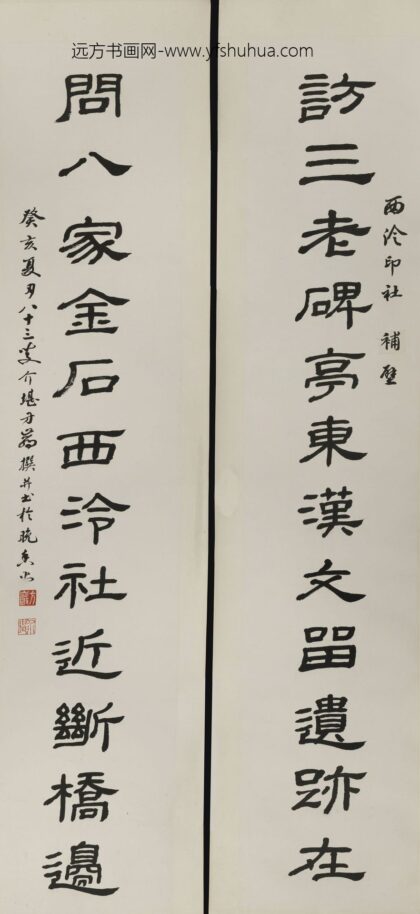 远方书画网-www.yfshuhua.com
西泠印社 補壁
訪三老碑亭東漢文留遺跡在
問八家金石西泠社近斷橋邊
癸亥夏月八十三叟介堪方巖撰并书於晚香